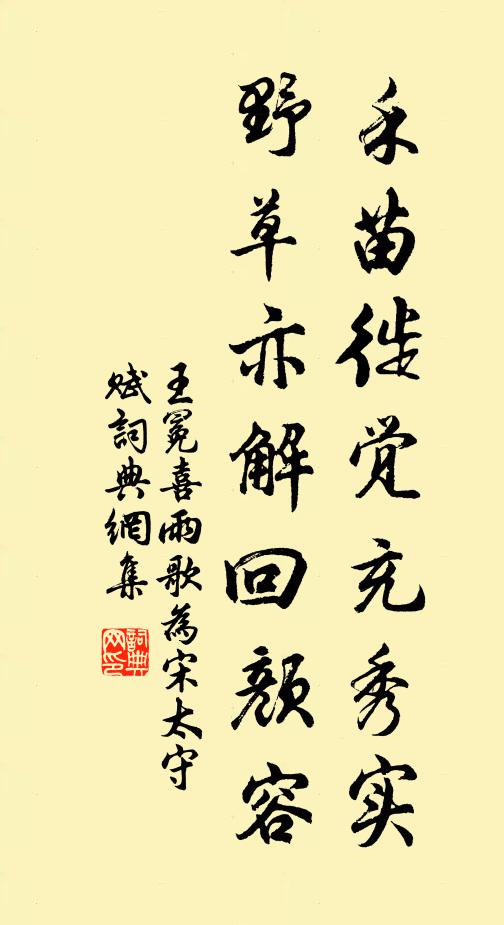 禾苗徙觉充秀实
野草亦解回颜容
王冕喜雨歌為宋太守
赋詞典網集
詞典网印